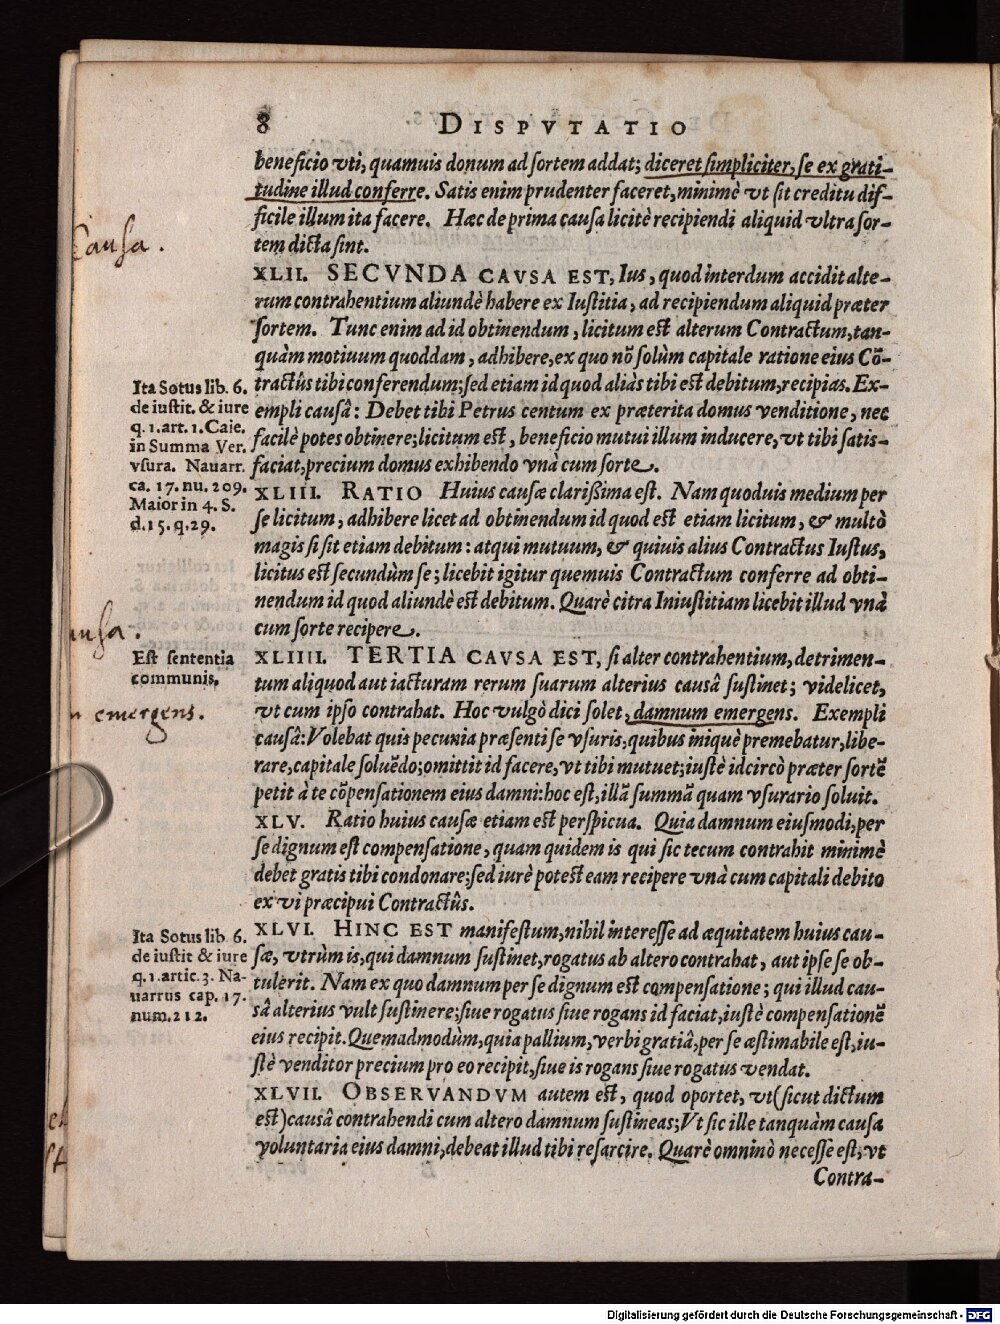 8 DISPVTATIO
beneficio vti, quamuis donum ad sortem addat; diceret simpliciter, se ex grati-
tudine illud conferre. Satis enim prudenter faceret, minimè vt sit creditu dif-
ficile illum ita facere. Hæc de prima causa licitè recipiendi aliquid vltra sor-
tem dicta sint.
Causa.
XLII. SECVNDA CAVSA EST, Ius, quod interdum accidit alte-
rum contrahentium aliundè habere ex Iustitia, ad recipiendum aliquid præter
sortem. Tunc enim ad id obtinendum, licitum est alterum Contractum, tan-
quàm motiuum quoddam, adhibere, ex quo nõ solùm capitale ratione eius Cõ-
tractûs tibi conferendum; sed etiam id quod aliàs tibi est debitum, recipias. Ex-
empli causâ: Debet tibi Petrus centum ex præterita domus venditione, nec
facilè potes obtinere; licitum est, beneficio mutui illum inducere, vt tibi satis-
faciat, precium domus exhibendo vnà cum sorte.
Ita Sotus lib. 6.
de iustit. & iure
q. 1. art. 1. Caie.
in Summa Ver.
vsura. Nauarr.
ca. 17. nu. 209.
Maior in 4. S.
d. 15. q. 29.
XLIII. RATIO Huius causæ clarißima est. Nam quoduis medium per
se licitum, adhibere licet ad obtinendum id quod est etiam licitum, & multò
magis si sit etiam debitum: atqui mutuum, & quiuis alius Contractus Iustus,
licitus est secundùm se; licebit igitur quemuis Contractum conferre ad obti-
nendum id quod aliundè est debitum. Quarè citra Iniustitiam licebit illud vnà
cum sorte recipere.
ausa.
Est sententia
communis.
n emergens.
XLIIII. TERTIA CAVSA EST, si alter contrahentium, detrimen-
tum aliquod aut iacturam rerum suarum alterius causâ sustinet; videlicet,
vt cum ipso contrahat. Hoc vulgò dici solet, damnum emergens. Exempli
causâ: Volebat quis pecunia præsenti se vsuris, quibus iniquè premebatur, libe-
rare, capitale soluẽdo; omittit id facere, vt tibi mutuet; iustè idcircò præter sortẽ
petit à te cõpensationem eius damni: hoc est, illã summã quam vsurario soluit.
XLV. Ratio huius causæ etiam est perspicua. Quia damnum eiusmodi, per
se dignum est compensatione, quam quidem is qui sic tecum contrahit minimè
debet gratis tibi condonare; sed iurè potest eam recipere vnà cum capitali debito
ex vi præcipui Contractûs.
Ita Sotus lib. 6.
de iustit & iure
q. 1. artic. 3. Na-
uarrus cap. 17.
num. 212.
XLVI. HINC EST manifestum, nihil interesse ad æquitatem huius cau-
sæ, vtrùm is, qui damnum sustinet, rogatus ab altero contrahat, aut ipse se ob-
tulerit. Nam ex quo damnum per se dignum est compensatione; qui illud cau-
sâ alterius vult sustinere; siue rogatus siue rogans id faciat, iustè compensationẽ
eius recipit. Quemadmodùm, quia pallium, verbi gratiâ, per se æstimabile est, iu-
stè venditor precium pro eo recipit, siue is rogans siue rogatus vendat.
XLVII. OBSERVANDVM autem est, quod oportet, vt (sicut dictum
est) causâ contrahendi cum altero damnum sustineas; Vt sic ille tanquàm causa
voluntaria eius damni, debeat illud tibi resarcire. Quarè omninò necesse est, vt
Contra-
Digitalisierung gefördert durch die Deutsche Forschungsgemeinschaft - DFG